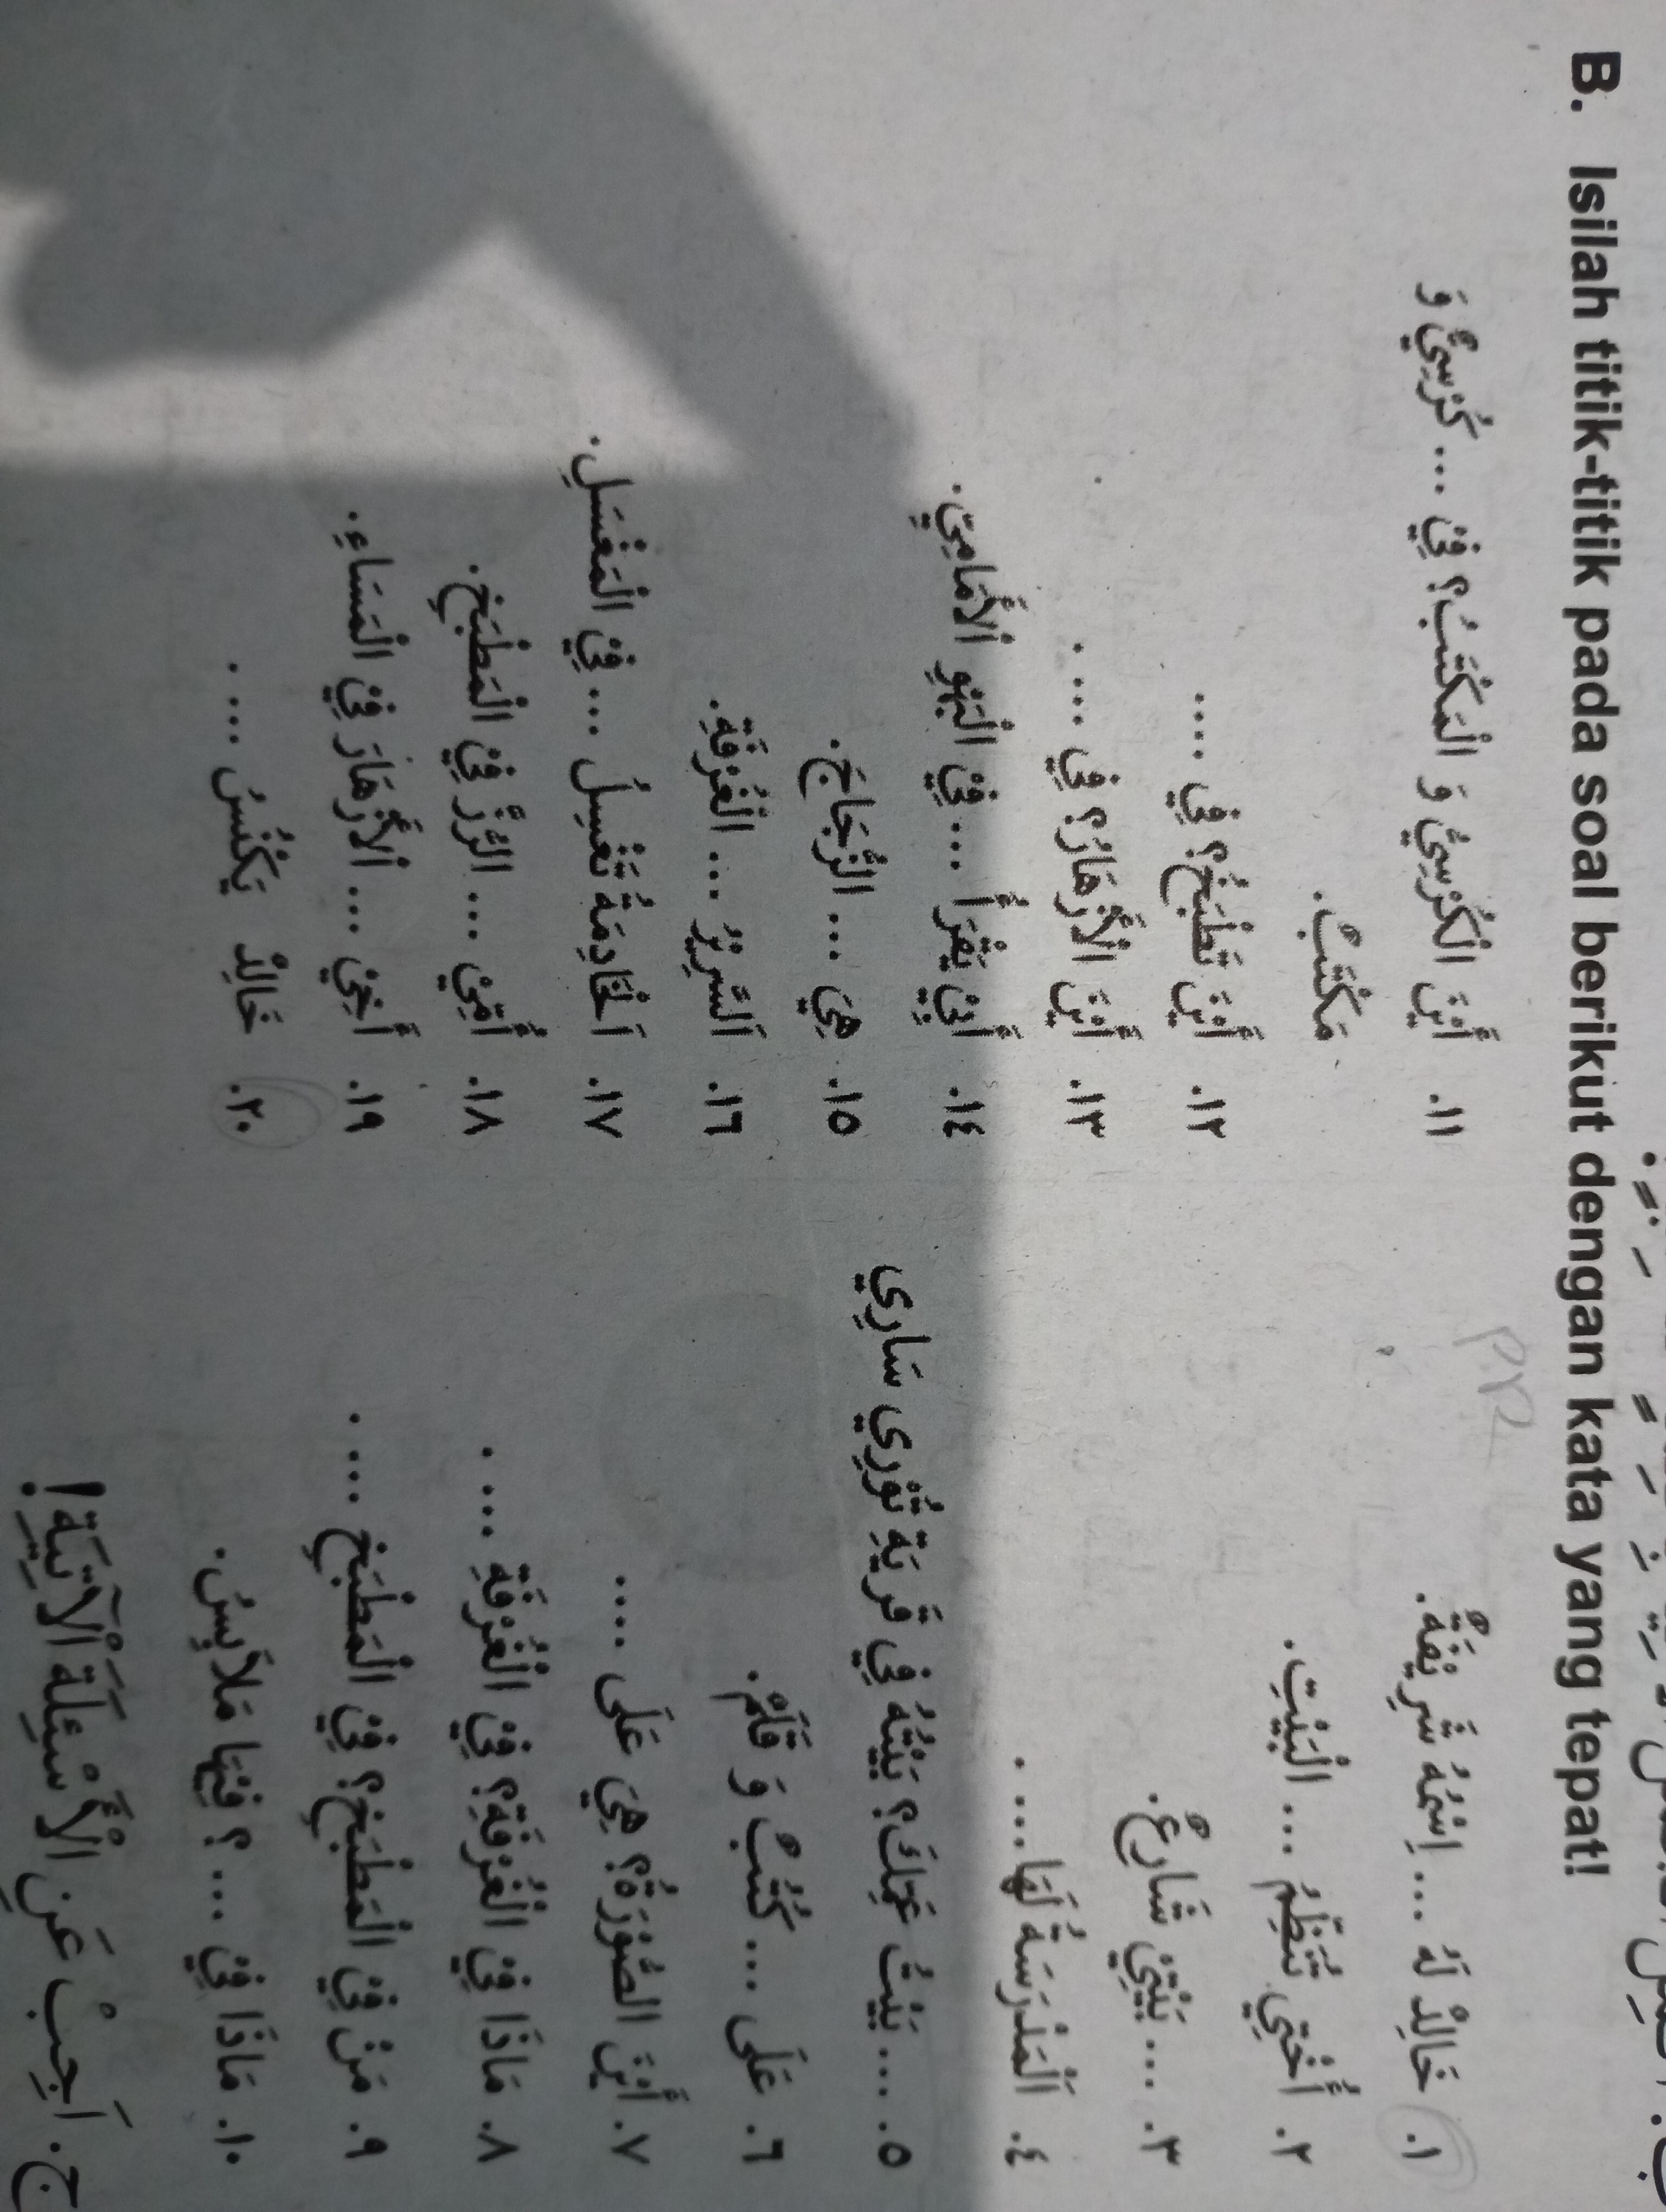 B. Isilah titik-titik pada soal berikut dengan kata yang tepat!
PR
١. خَالِدٌ لَهُ ... اِسْمُهُ شَرِيْفَةٌ.
٢. أُخْتِي تُنَظِّمُ ... الْبَيْتِ.
٣. ... بَيْتِيْ شَارِعٌ.
٤. اَلْمَدْرَسَةُ لَهَا ... .
٥. ... بَيْتُ عَمِّكَ؟ بَيْتُهُ فِي قَرْيَةِ تُوْرِي سَارِي
٦. عَلَى ... كُتُبٌ وَ قَلَمٌ.
٧. أَيْنَ الصُّوْرَةُ؟ هِيَ عَلَى ....
٨. مَاذَا فِيْ الْغُرْفَةِ؟ فِيْ الْغُرْفَةِ ... .
٩. مَنْ فِيْ الْمَطْبَخِ؟ فِيْ الْمَطْبَخِ ... .
١٠. مَاذَا فِيْ ... ؟ فِيْهَا مَلَابِسُ.
١١. أَيْنَ الْكُرْسِيُّ وَ الْمَكْتَبُ؟ فِيْ ... كُرْسِيٌّ وَ
مَكْتَبٌ.
١٢. أَيْنَ تَطْبَخُ؟ فِي ....
١٣. أَيْنَ الْأَزْهَارُ؟ فِي ... .
١٤. أَبِيْ يَقْرَأُ ... فِيْ الْبَهْوِ الْأَمَامِيِّ.
١٥. هِيَ ... الزُّجَاجَ.
١٦. اَلسَّرِيْرُ ... الْغُرْفَةِ.
١٧. اَلْخَادِمَةُ تَغْسِلُ ... فِيْ الْمَغْسَلِ.
١٨. أُمِّيْ ... الرُّزَّ فِيْ الْمَطْبَخِ.
١٩. أَخِيْ ... الْأَزْهَارَ فِيْ الْمَسَاءِ.
٢٠. خَالِدٌ يَكْنُسُ ... .
ج. اَجِبْ عَنِ الْأَسْئِلَةِ الْآتِيَةِ!